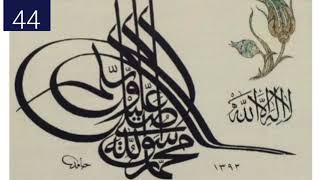 44
لا إله إلا الله
محمد رسول الله
صلى الله عليه وسلم
١٣٩٢